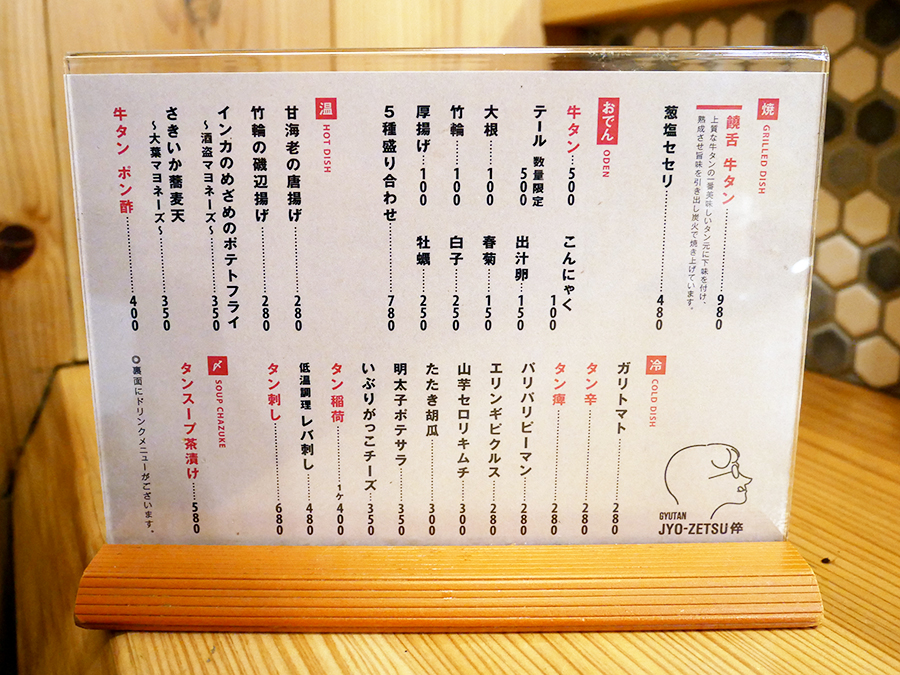 焼 GRILLED DISH
饒舌 牛タン 980
上質な牛タンの一番美味しいタン元に下味を付け、
熟成させ旨味を引き出し炭火で焼き上げています。
葱塩セセリ 480
おでん ODEN
牛タン 500
こんにゃく 100
テール 数量限定 500
出汁卵 150
大根 100
春菊 150
竹輪 100
白子 250
厚揚げ 100
牡蠣 250
5種盛り合わせ 780
温 HOT DISH
甘海老の唐揚げ 280
竹輪の磯辺揚げ 280
インカのめざめのポテトフライ
〜酒盗マヨネーズ〜 350
さきいか蕎麦天
〜大葉マヨネーズ〜 350
牛タン ポン酢 400
冷 COLD DISH
ガリトマト 280
タン辛 280
タン痺 280
パリパリピーマン 280
エリンギピクルス 280
山芋セロリキムチ 300
たたき胡瓜 300
明太子ポテサラ 350
いぶりがっこチーズ 350
タン稲荷 1ケ400
低温調理 レバ刺し 480
タン刺し 680
〆 SOUP CHAZUKE
タンスープ茶漬け 580
○裏面にドリンクメニューがございます。
GYUTAN
JYO-ZETSU 倅